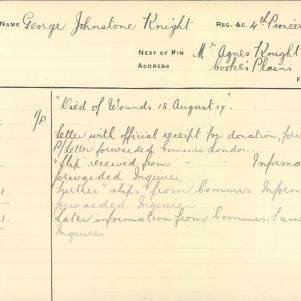 NAME George Johnstone Knight REG. &C. 4th Pioneer
NEXT OF KIN Mr Agnes Knight
ADDRESS Cooke's Plains
"Died of Wounds 18 August 17".
1/P Letter with official receipt for donation, for
P/Letter forwarded Commrs London..
"slip" received from " " Informa
forwarded Inquirer
Further "slips" from Commrs Inform
forwarded Inquirer
Later information from Commrs.
Inquirer